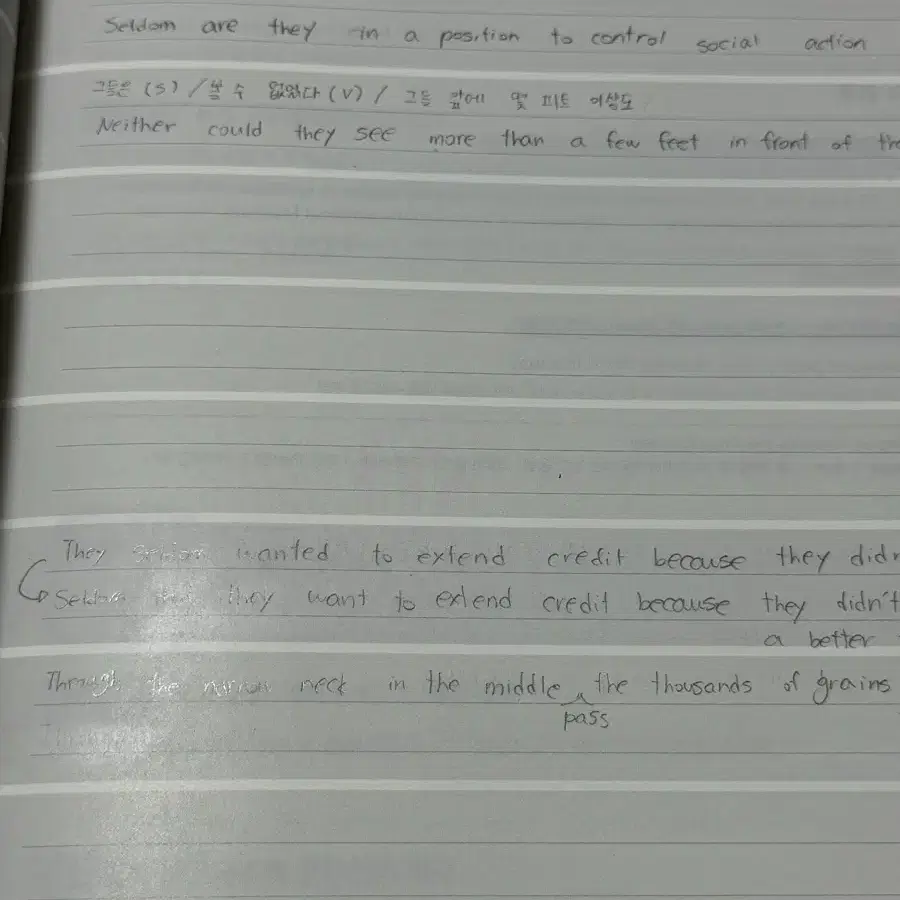 Seldom are they in a position to control social action
그들은 (S) / 볼 수 없었다 (V) / 그들 앞에 몇 피트 이상도
Neither could they see more than a few feet in front of
They seldom wanted to extend credit because they
Seldom they want to extend credit because they didn't
a better
Through the narrow neck in the middle the thousands of grains
pass